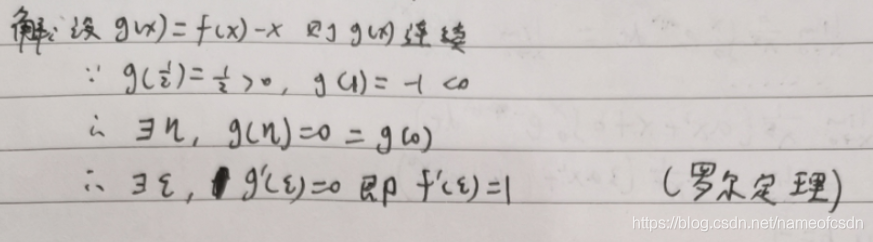 解：设 g(x)=f(x)-x 则 g(x) 连续
∵ g(1/2)=1/2>0, g(1)=-1<0
∴ ∃η, g(η)=0=g(0)
∴ ∃ξ, g'(ξ)=0 即 f'(ξ)=1 (罗尔定理)
https://blog.csdn.net/nameofcsdn